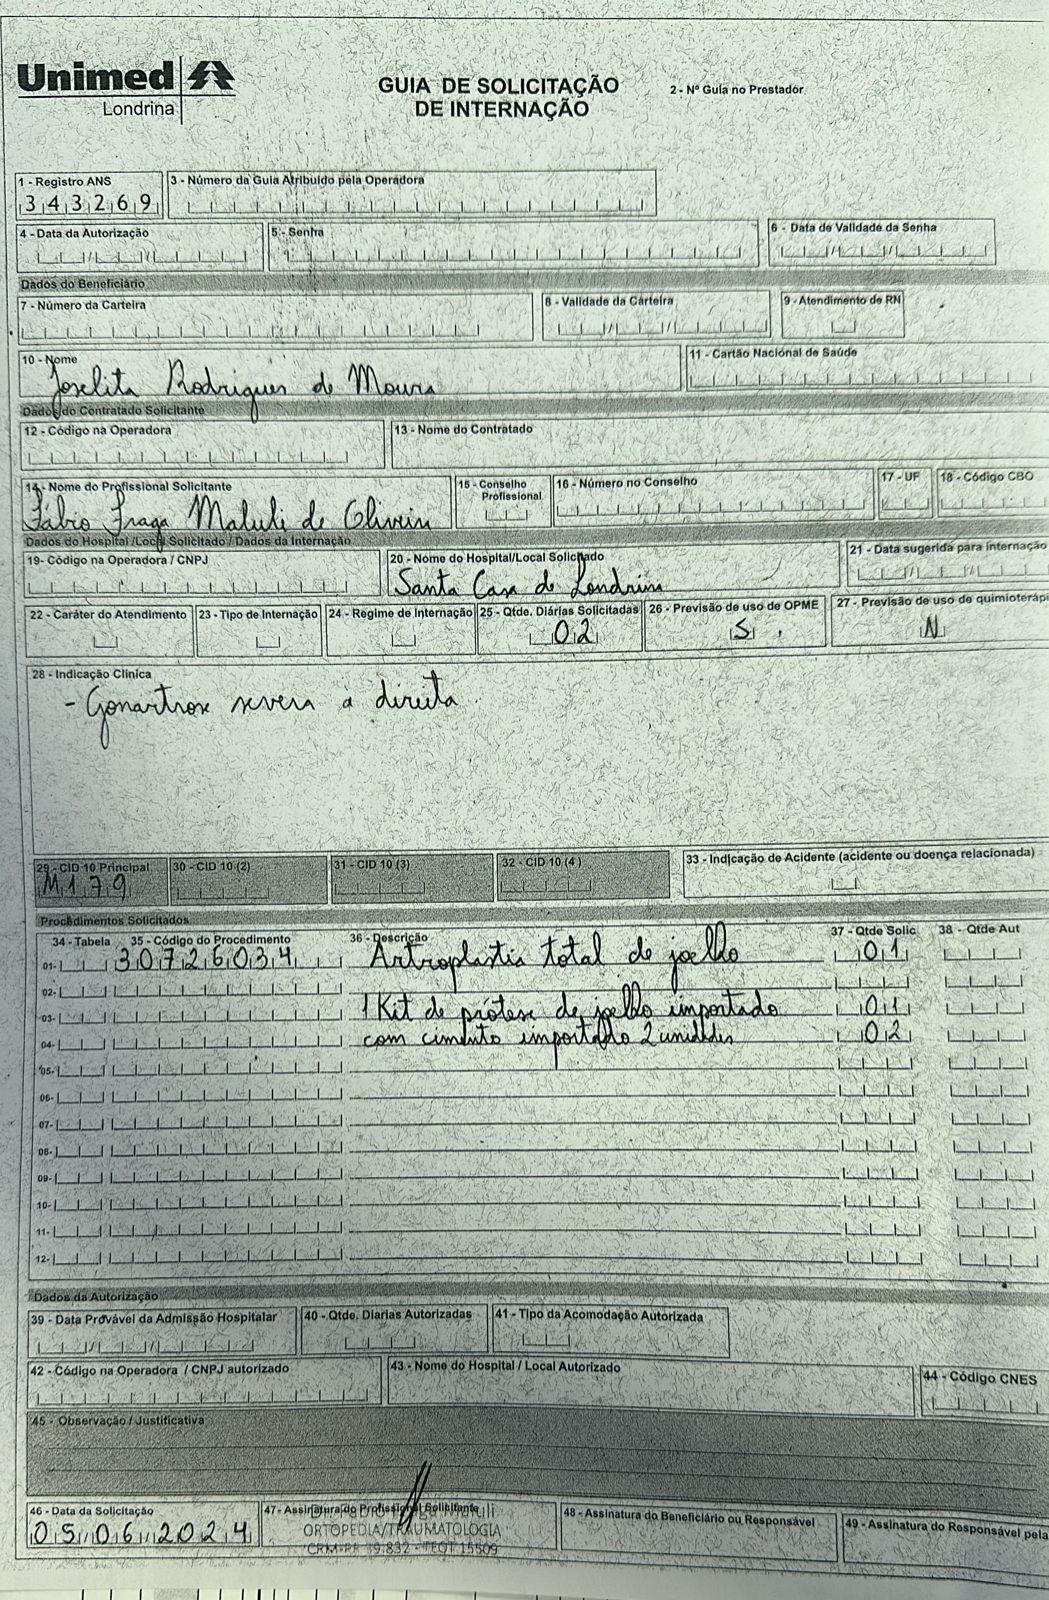 Unimed
Londrina
GUIA DE SOLICITAÇÃO
DE INTERNAÇÃO
2 - Nº Guia no Prestador
1 - Registro ANS
343269
3 - Número da Guia Atribuído pela Operadora
4 - Data da Autorização
5 - Senha
6 - Data de Validade da Senha
Dados do Beneficiário
7 - Número da Carteira
8 - Validade da Carteira
9 - Atendimento de RN
10 - Nome
Joselita Rodrigues de Moura
11 - Cartão Nacional de Saúde
Dados do Contratado Solicitante
12 - Código na Operadora
13 - Nome do Contratado
14 - Nome do Profissional Solicitante
Fábio Fraga Maluli de Oliveira
15 - Conselho
Profissional
16 - Número no Conselho
17 - UF
18 - Código CBO
Dados do Hospital /Local Solicitado / Dados da Internação
19- Código na Operadora / CNPJ
20 - Nome do Hospital/Local Solicitado
Santa Casa de Londrina
21 - Data sugerida para internação
22 - Caráter do Atendimento
23 - Tipo de Internação
24 - Regime de Internação
25 - Qtde. Diárias Solicitadas
02
26 - Previsão de uso de OPME
S
27 - Previsão de uso de quimioterápi
N
28 - Indicação Clínica
- Gonartrose severa a direita
29 - CID 10 Principal
M179
30 - CID 10 (2)
31 - CID 10 (3)
32 - CID 10 (4)
33 - Indicação de Acidente (acidente ou doença relacionada)
Procedimentos Solicitados
34 - Tabela 35 - Código do Procedimento 36 - Descrição 37 - Qtde Solic 38 - Qtde Aut
01- 30726034 Artroplastia total de joelho 01
02-
03- 1 Kit de prótese de joelho importado 01
04- com cimento importado 2 unidades 02
05-
06-
07-
08-
09-
10-
11-
12-
Dados da Autorização
39 - Data Provável da Admissão Hospitalar
40 - Qtde. Diarias Autorizadas
41 - Tipo da Acomodação Autorizada
42 - Código na Operadora / CNPJ autorizado
43 - Nome do Hospital / Local Autorizado
44 - Código CNES
45 - Observação / Justificativa
46 - Data da Solicitação
05/06/2024
47 - Assinatura do Profissional Solicitante
ORTOPEDIA/TRAUMATOLOGIA
48 - Assinatura do Beneficiário ou Responsável
49 - Assinatura do Responsável pela